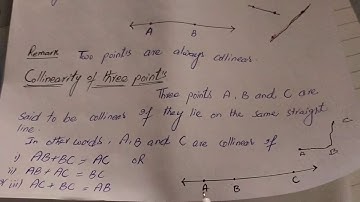 A B
Remark Two points are always collinear.
Collinearity of three points
Three points A, B and C are
said to be collinear if they lie on the same straight
line.
In other words, A, B and C are collinear if
i) AB + BC = AC OR
ii) AB + AC = BC
iii) AC + BC = AB
A B C
A B C